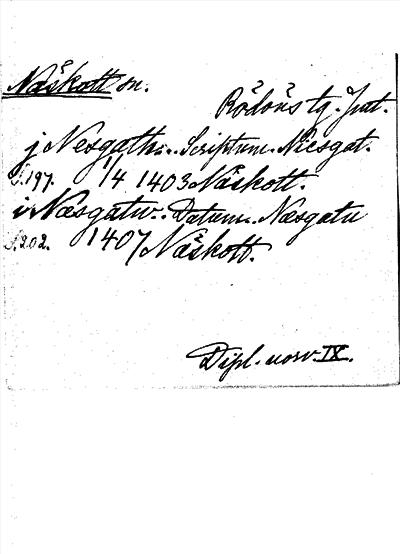 Näskott sn.
Rödöns tg. Jmt.
j Nesgath... Scriptum.. Niesgat.
S.197. 1/4 1403 Näskott.
i Næsgatu... Datum.. Næsgatu
S.202. 1407 Näskott.
Dipl. norv. IX.